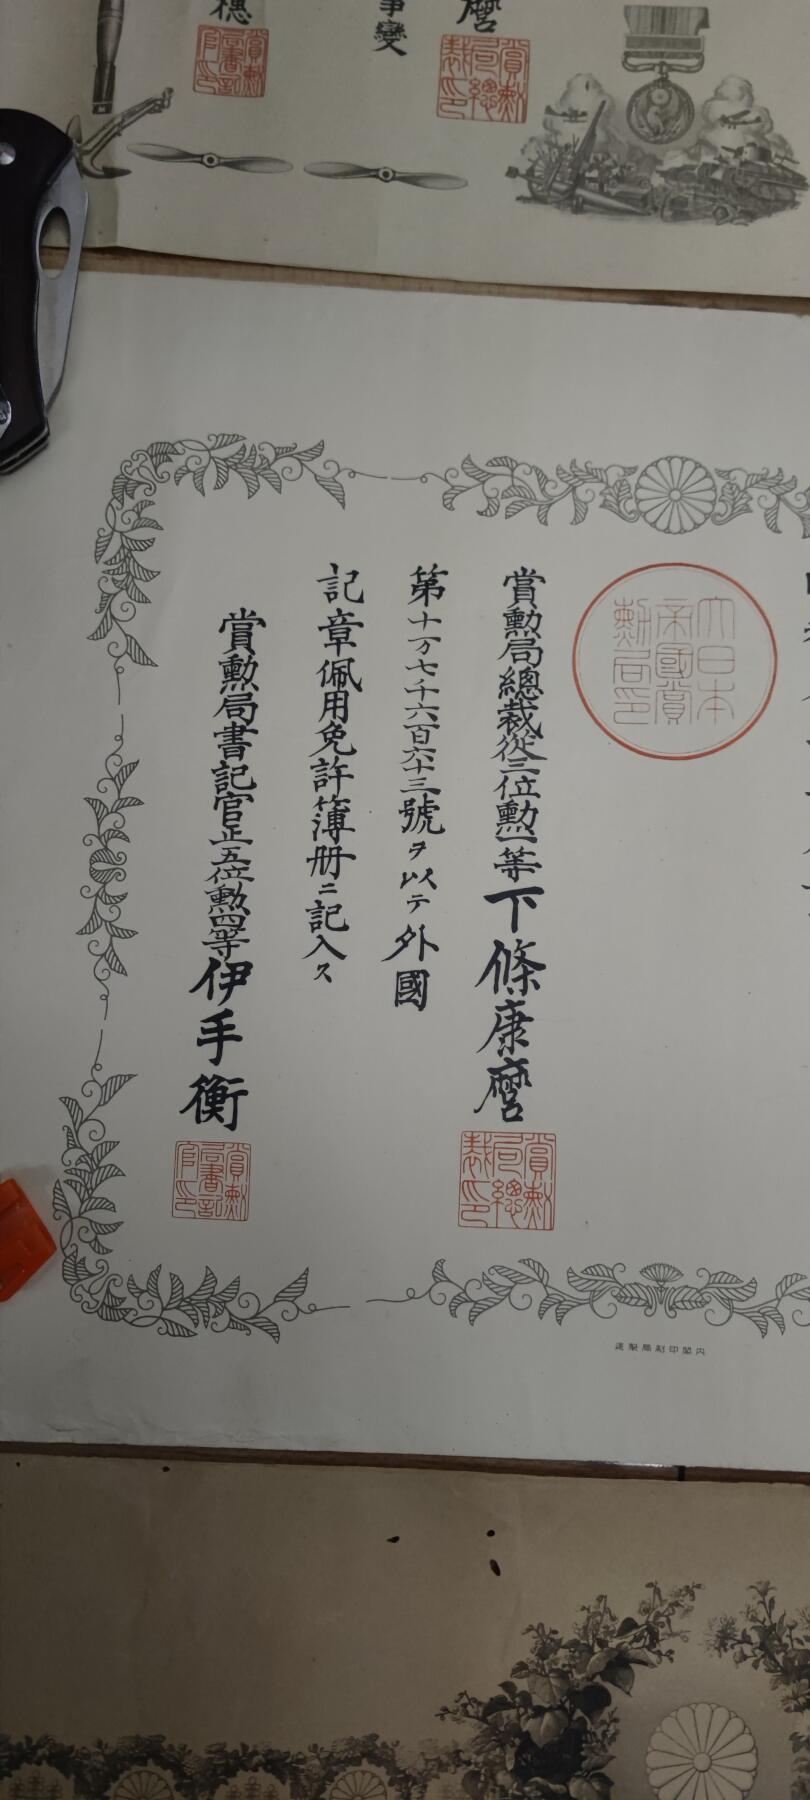 麿
事變
穗
賞勲局總裁印
賞勲局書記官印
大日本
帝國賞
勲局印
賞勲局總裁從三位勲一等下條康麿
第十万七千六百六十三號ヲ以テ外國
記章佩用免許簿册ニ記入ス
賞勲局書記官正五位勲四等伊手衡
賞勲局總裁印
賞勲局書記官印
内閣印刷局製造